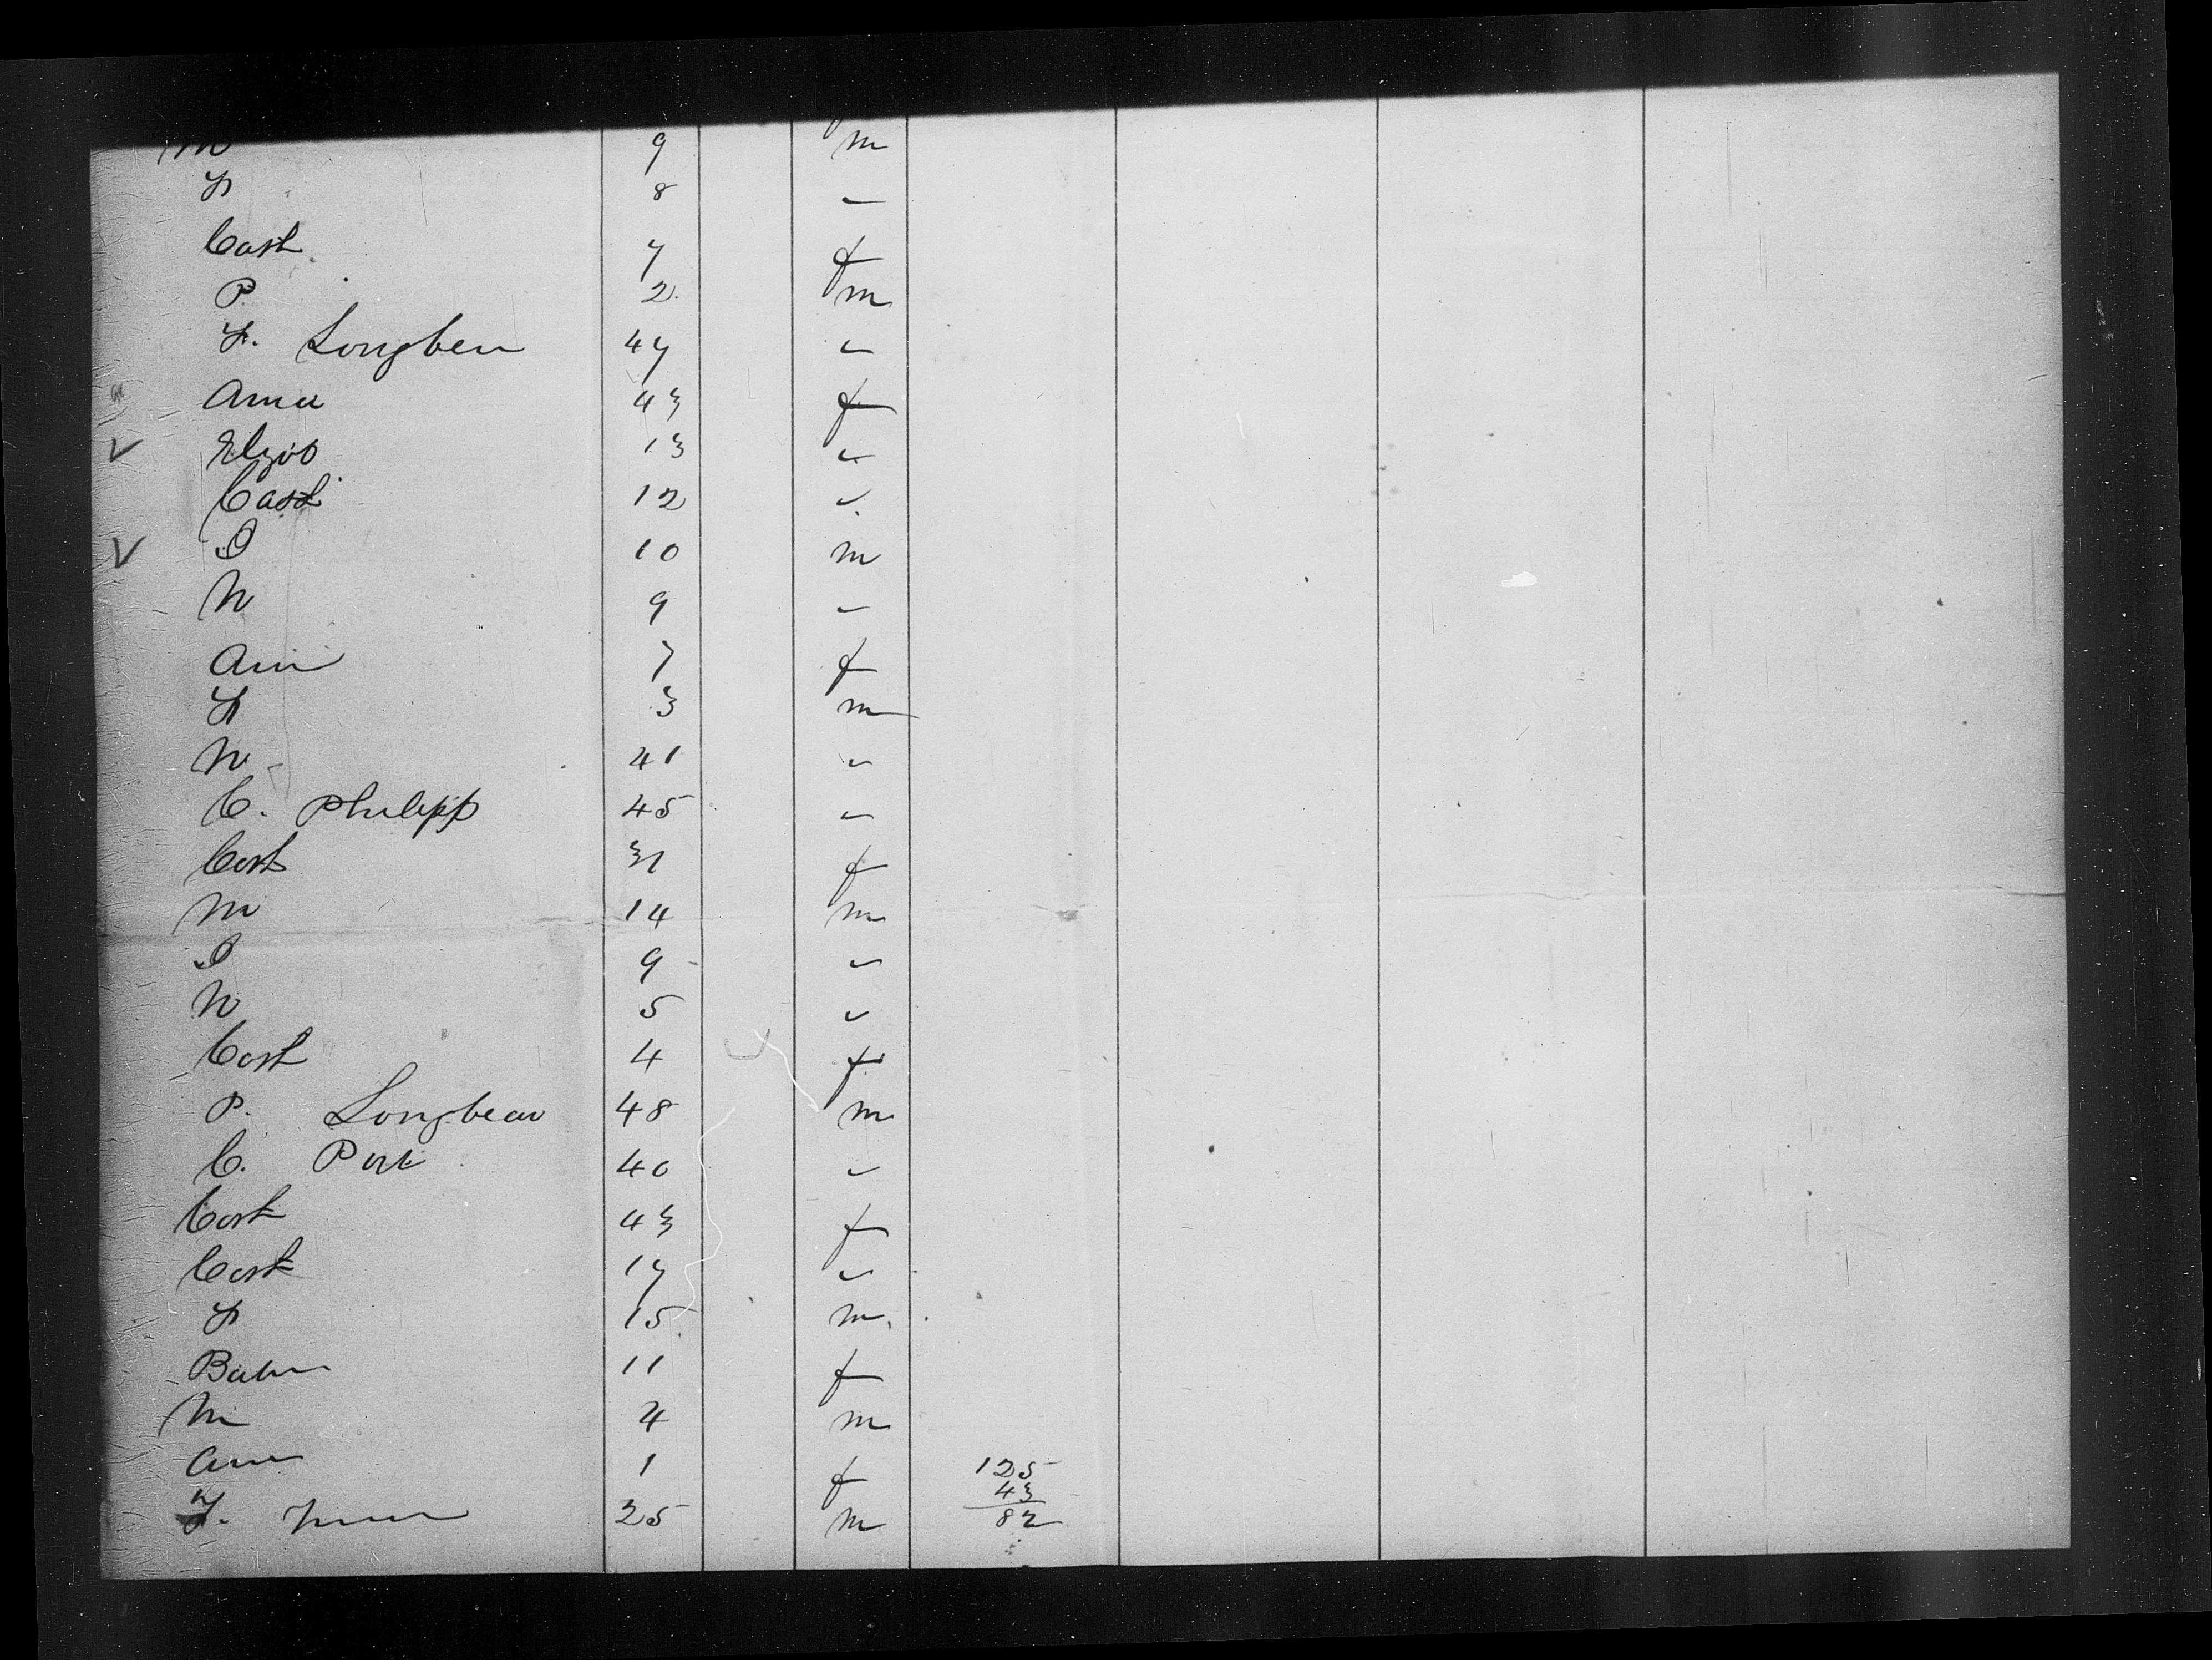 m 9 m
F 8 "
Cath 7 f
P. 2 m
F. Longben 47 "
Anna 43 f
Elzib 13 "
Cath 12 "
J 10 m
N 9 "
Ann 7 f
F 3 m
N 41 "
C. Philipp 45 "
Cath 31 f
M 14 m
J 9 "
N 5 "
Cath 4 f
P. Longbean 48 m
C. 40 "
Cath 43 f
Cath 17 "
F 15 m
11 f
M 4 m
Ann 1 f 125
43
F. 25 m 82